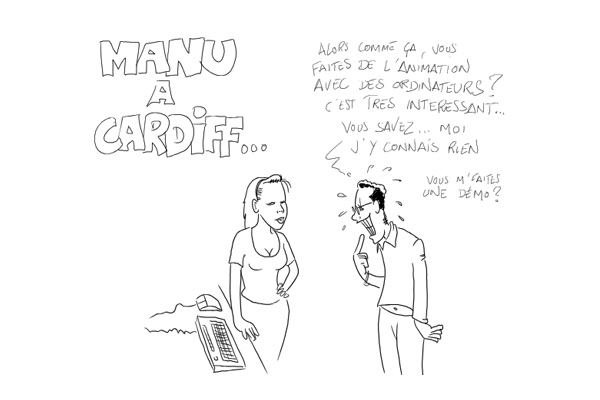 MANU
A
CARDIFF...
ALORS COMME ÇA, VOUS
FAITES DE L'ANIMATION
AVEC DES ORDINATEURS?
C'EST TRES INTERESSANT...
VOUS SAVEZ... MOI
J'Y CONNAIS RIEN
VOUS M'FAITES
UNE DÉMO?